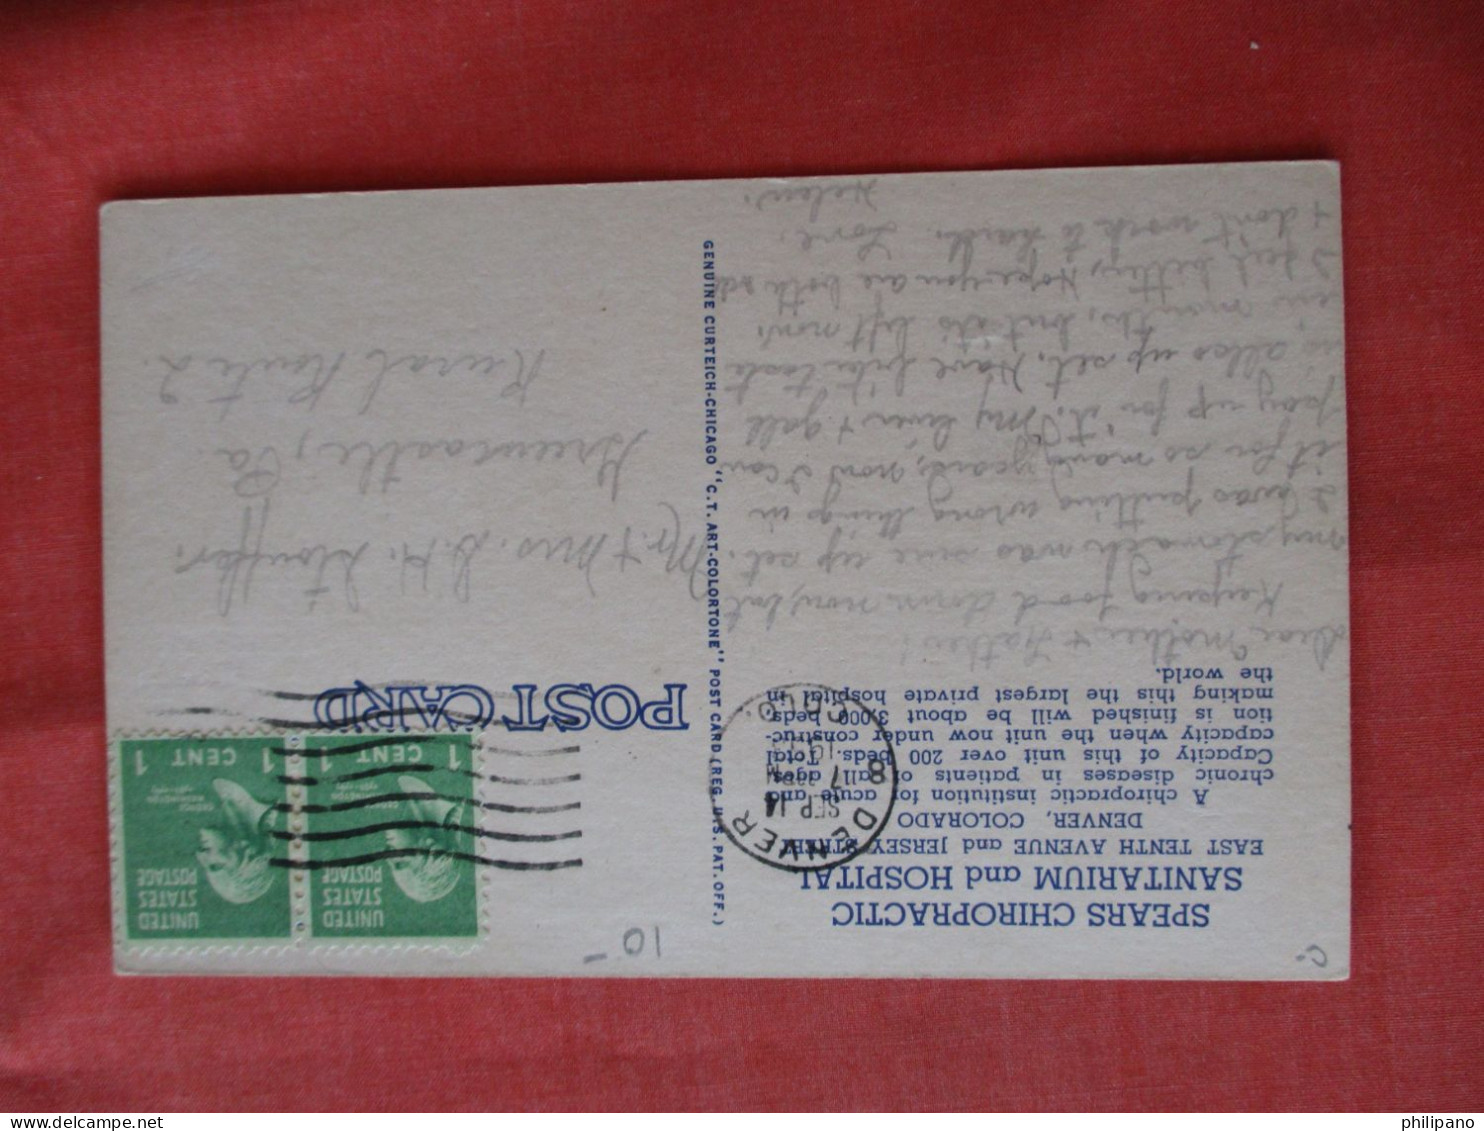 SPEARS CHIROPRACTIC
SANITARIUM and HOSPITAL
EAST TENTH AVENUE and JERSEY STREET
DENVER, COLORADO
A chiropractic institution for acute and
chronic diseases in patients of all ages.
Capacity of this unit over 200 beds. Total
capacity when the unit now under construc-
tion is finished will be about 3,000 beds
making this the largest private hospital in
the world.
Dear Mother & Father!
Keeping food down now, but
my stomach was sure up set.
I was putting wrong things in
it for so many years, now I can
pay up for it. My liver & gall
is allso up set. Have bitter taste
in mouth, but it's left now.
I feel better, Hope you are both o.k.
& don't work to hard. Love.
Helen.
GENUINE CURTEICH-CHICAGO "C.T. ART-COLORTONE" POST CARD (REG. U.S. PAT. OFF.)
10-
C-
DENVER
COLO.
8
SEP 14
7
PM
POST CARD
UNITED
STATES
POSTAGE
1 CENT 1
UNITED
STATES
POSTAGE
1 CENT 1
Mr. & Mrs. D.H. Stouffer.
Greencastle, Pa.
Rural Route 2.
philipano